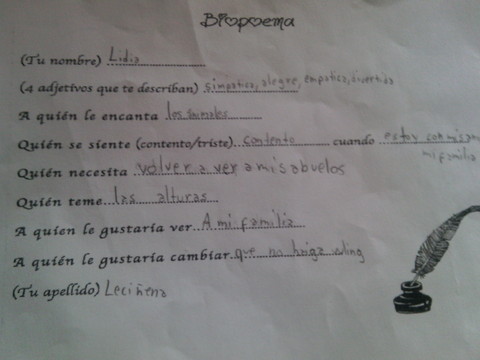 Biopoema
(Tu nombre) Lidia
(4 adjetivos que te describan) simpatica, alegre, empatica, divertida
A quién le encanta los animales
Quién se siente (contento/triste) contento cuando estoy con mis
mi familia
Quién necesita volver a ver a mis abuelos
Quién teme las alturas
A quien le gustaría ver A mi familia
A quién le gustaría cambiar que no haiga
(Tu apellido) Leciñena